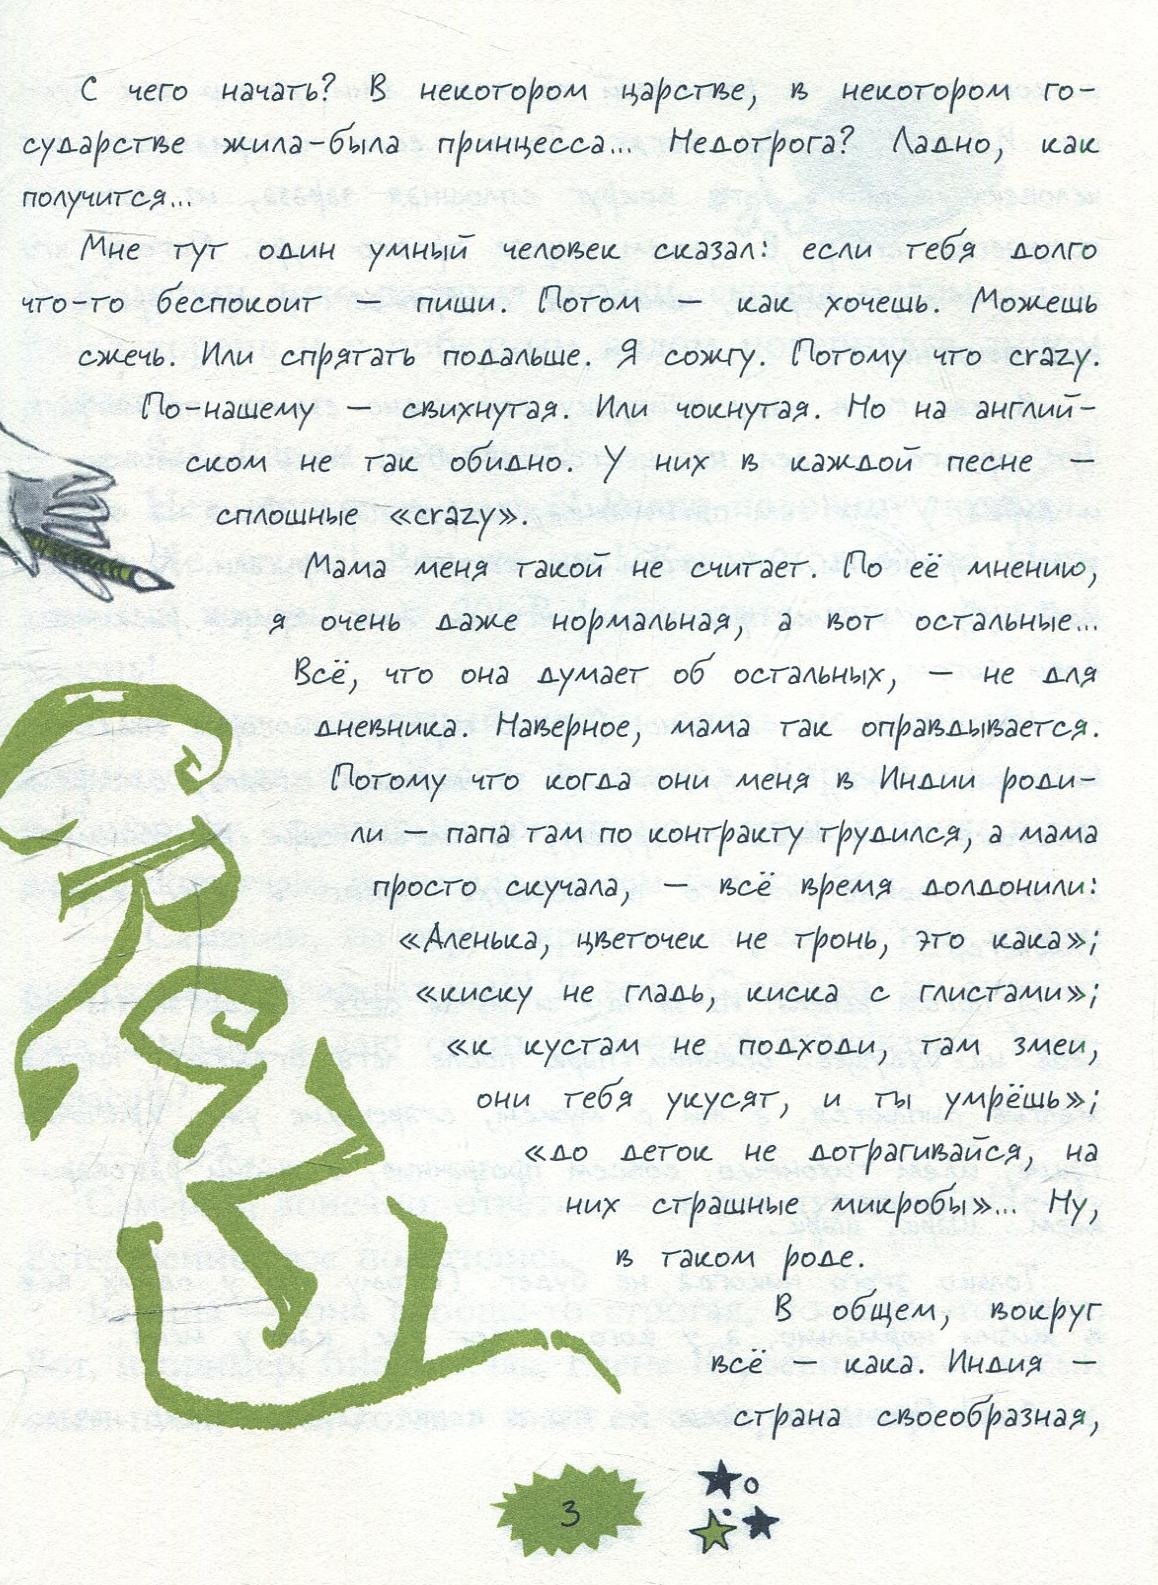 С чего начать? В некотором царстве, в некотором го-
сударстве жила-была принцесса... Недотрога? Ладно, как
получится...
Мне тут один умный человек сказал: если тебя долго
что-то беспокоит — пиши. Потом — как хочешь. Можешь
сжечь. Или спрятать подальше. Я сожгу. Потому что crazy.
По-нашему — свихнутая. Или чокнутая. Но на англий-
ском не так обидно. У них в каждой песне —
сплошные «crazy».
Мама меня такой не считает. По её мнению,
я очень даже нормальная, а вот остальные...
Всё, что она думает об остальных, — не для
дневника. Наверное, мама так оправдывается.
Потому что когда они меня в Индии роди-
ли — папа там по контракту трудился, а мама
просто скучала, — всё время долдонили:
«Аленька, цветочек не тронь, это кака»;
«киску не гладь, киска с глистами»;
«к кустам не подходи, там змеи,
они тебя укусят, и ты умрёшь»;
«до деток не дотрагивайся, на
них страшные микробы»... Ну,
в таком роде.
В общем, вокруг
всё — кака. Индия —
страна своеобразная,
CRAZY
3